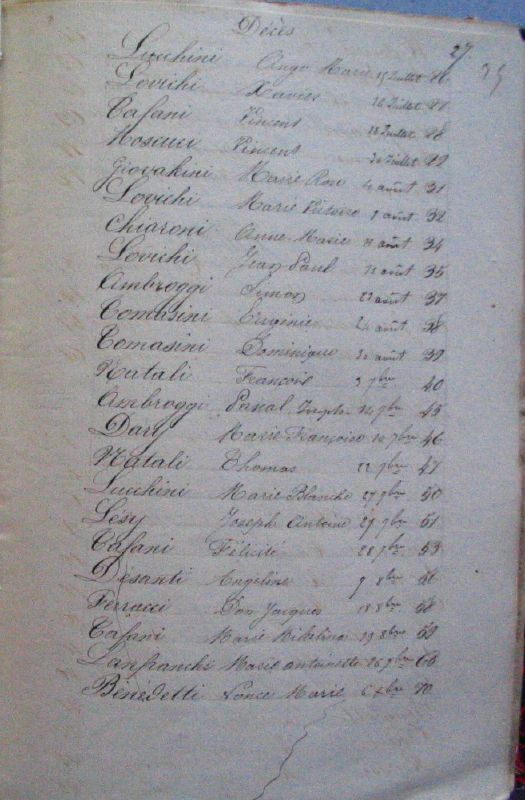 Décès
27
Lucchini Ange Marie 15 Juillet 26
Lovichi Xavier 16 Juillet
Casani Vincent 18 Juillet 28
Moscuci Vincent 30 Juillet 29
Giovakini Marie Rose 4 août 31
Lovichi Marie 8 août 32
Chiaroni Anne Marie 11 août 34
Lovichi Jean Paul 11 août 35
Ambroggi Simon 23 août 37
Tomasini Eugénie 24 août 38
Tomasini Dominique 30 août 39
Natali François 3 7bre 40
Ambroggi Pascal Joseph 14 7bre 45
Dary Marie Françoise 16 7bre 46
Natali Thomas 22 7bre 47
Lucchini Marie Blanche 27 7bre 50
Lésy Joseph Antoine 27 7bre 51
Casani Félicité 28 7bre 53
Désanti Angeline 9 8bre 56
Ferracci Don Jacques 18 8bre 58
Casani Marie 19 8bre 59
Lanfranchi Marie antoinette 26 9bre 66
Bénédetti Ponce Marie 6 xbre 70